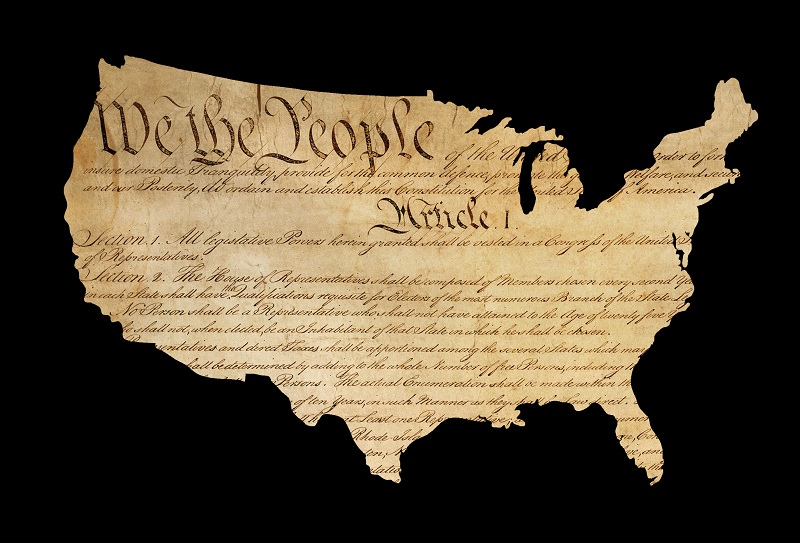 We the People of the United order to form
insure domestic Tranquility, provide for the common defence, promote the welfare, and secure
and our Posterity, do ordain and establish this Constitution for the United States of America.
Article. I.
Section. 1. All legislative Powers herein granted shall be vested in a Congress of the United
of Representatives.
Section. 2. The House of Representatives shall be composed of Members chosen every second
in each State shall have the Qualifications requisite for Electors of the most numerous Branch of the State
No Person shall be a Representative who shall not have attained to the Age of twenty five
shall not, when elected, be an Inhabitant of that State in which he shall be chosen.
and direct Taxes shall be apportioned among the several States which may
shall be determined by adding to the whole Number of free Persons, including
Persons. The actual Enumeration shall be made within
of ten Years, in such Manner as they shall by Law direct.
at Least one
Rhode